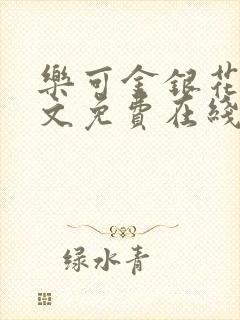 樂可金銀花
文免費在綫
绿水青